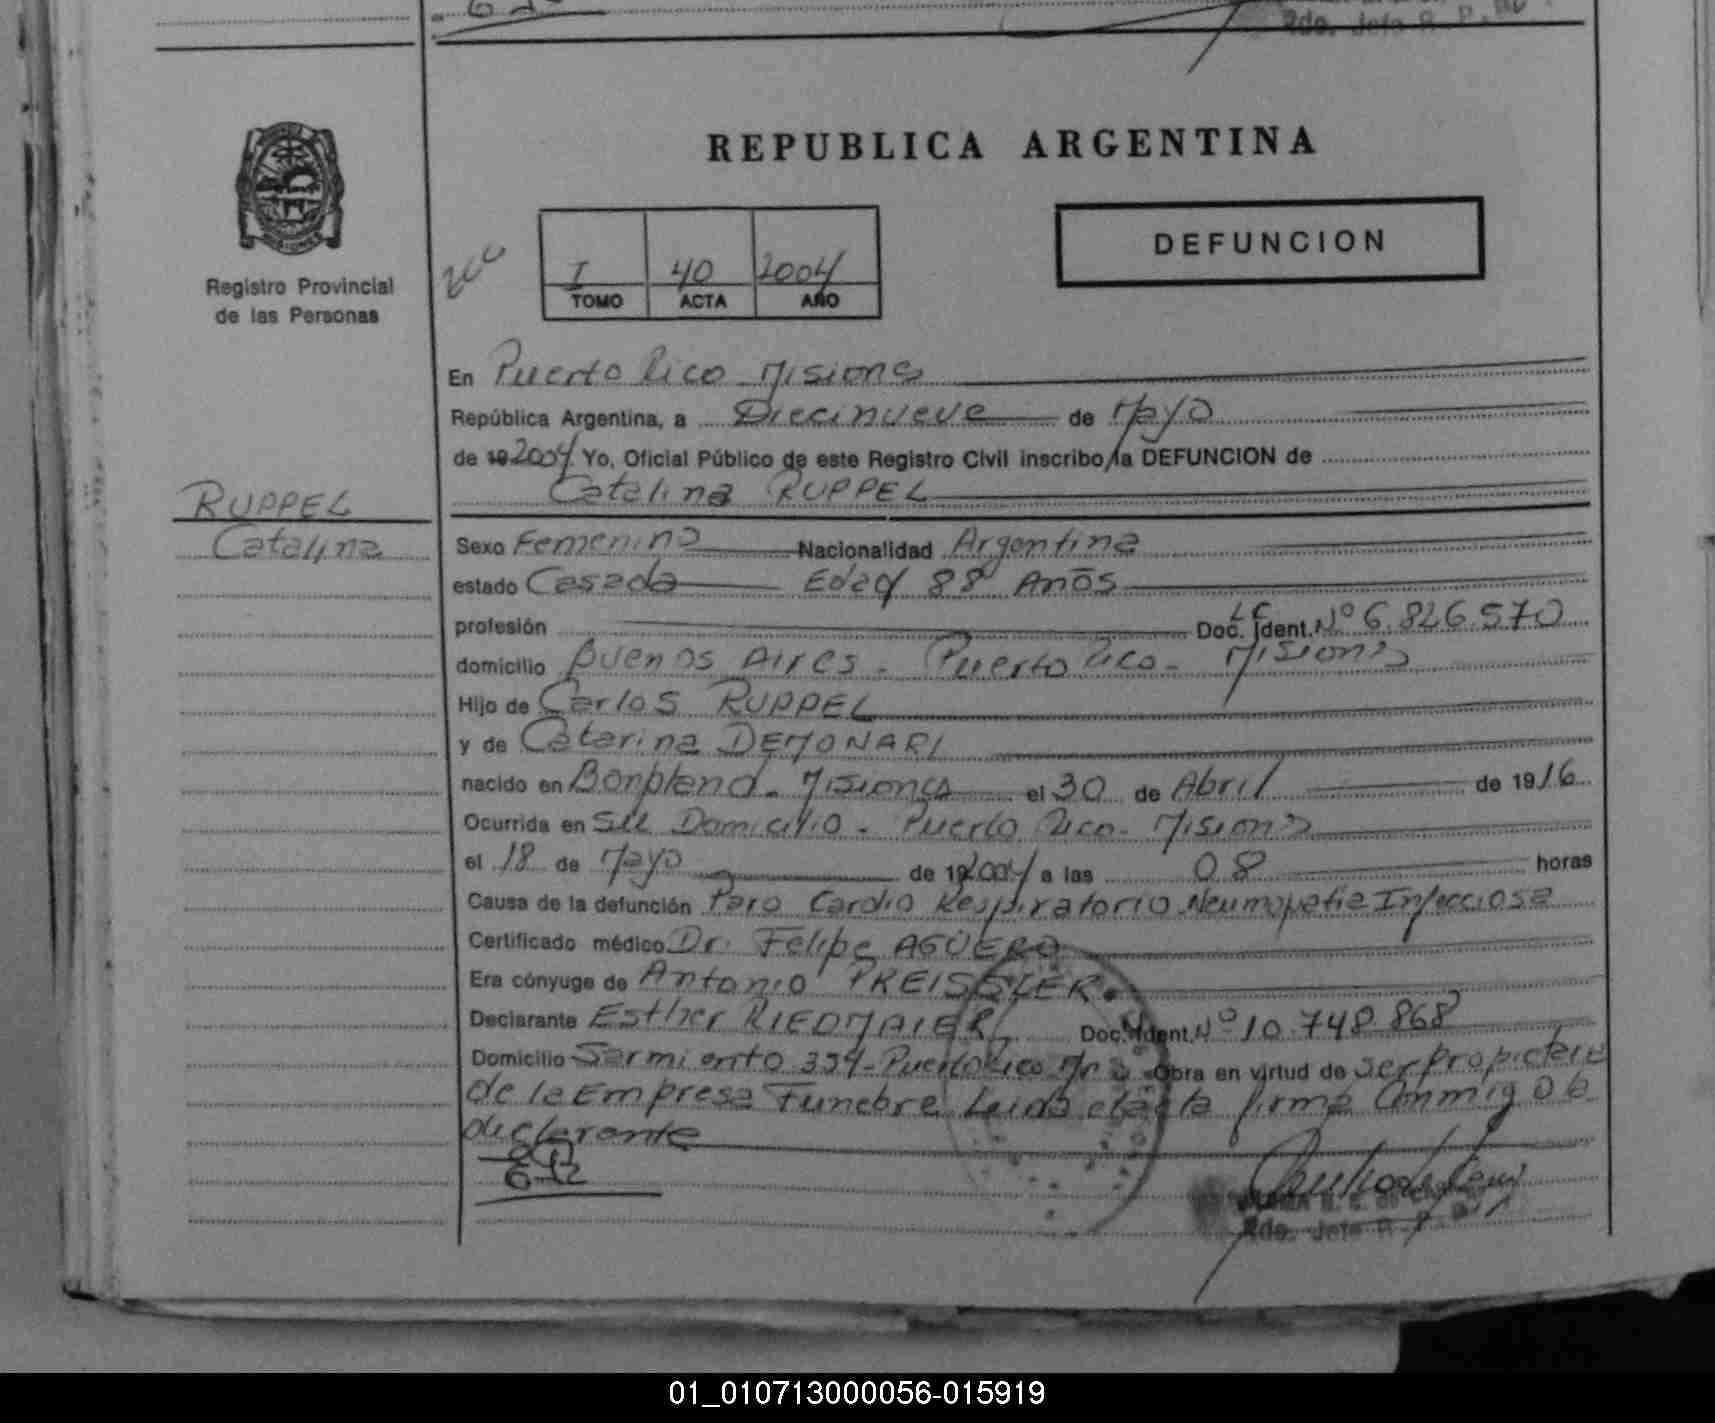 Rdo. Jefe R. P.
REPUBLICA ARGENTINA
DEFUNCION
I 40 2004
TOMO ACTA AÑO
Registro Provincial
de las Personas
En Puerto Rico Misiones
República Argentina, a Diecinueve de Mayo
de 19 2004 Yo, Oficial Público de este Registro Civil inscribo la DEFUNCION de
Catalina RUPPEL
RUPPEL
Catalina
Sexo Femenino Nacionalidad Argentina
estado Casada Edad 88 Años
profesión Doc. Ident. LC Nº 6.826.570
domicilio Buenos Aires - Puerto Rico - Misiones
Hijo de Carlos RUPPEL
y de Catarina DEMONARI
nacido en Bonpland - Misiones el 30 de Abril de 1916
Ocurrida en Su Domicilio - Puerto Rico - Misiones
el 18 de Mayo de 19 2004 a las 08 horas
Causa de la defunción Paro Cardio Respiratorio Neumopatia Infecciosa
Certificado médico Dr. Felipe AGÜERO
Era cónyuge de Antonio PREISSLER.
Declarante Esther RIEDMAIER Doc. Ident. Nº 10.748.868
Domicilio Sarmiento 334 - Puerto Rico Mnes Obra en virtud de ser propietaria
de la Empresa Funebre Leida el acta firma Conmigo la
declarante
Rdo. Jefe R. P.
01_010713000056-015919